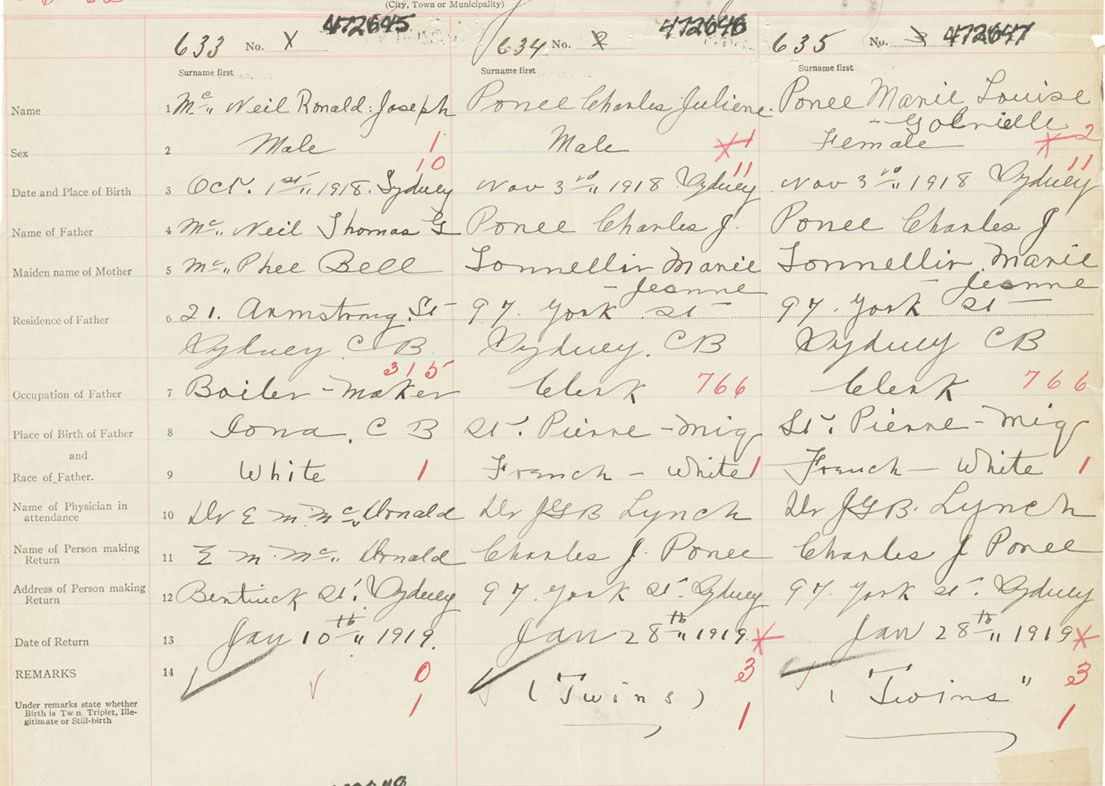 (City, Town or Municipality)
472645 472646 472647
633 No. X 634 No. 2 635 No. 3
Surname first Surname first Surname first
Name 1 Mc„ Neil Ronald Joseph Ponee Charles Juliene Ponee Marie Louise
Sex 2 Male 1 Male X 1 Female X 2
10 11 11
Date and Place of Birth 3 Oct. 1st„ 1918. Sydney Nov 3rd„ 1918 Sydney Nov 3rd„ 1918 Sydney
Name of Father 4 Mc„ Neil Thomas G Ponee Charles J. Ponee Charles J
Maiden name of Mother 5 Mc„ Phee Bell Marie Marie
- Jeanne Jeanne
Residence of Father 6 21. Armstrong St 97. York St 97. York St
Sydney. C B. Sydney. CB Sydney CB
315
Occupation of Father 7 Boiler-maker Clerk 766 Clerk 766
Place of Birth of Father 8 Iona, C B St. Pierre-Miq St. Pierre-Miq
and
Race of Father. 9 White 1 French - White 1 French - White 1
Name of Physician in attendance 10 Dr E M. Mc„ Donald Dr JGB Lynch Dr JGB. Lynch
Name of Person making Return 11 E M. Mc„ Donald Charles J. Ponee Charles J Ponee
Address of Person making Return 12 Bentinck St. Sydney 97. York St. Sydney 97 York St. Sydney
Date of Return 13 Jan 10th„ 1919. Jan 28th„ 1919 X Jan 28th„ 1919 X
REMARKS 14 0 3 3
Under remarks state whether Birth is Twin, Triplet, Ille-gitimate or Still-birth 1 (Twins) 1 ( "Twins" 1